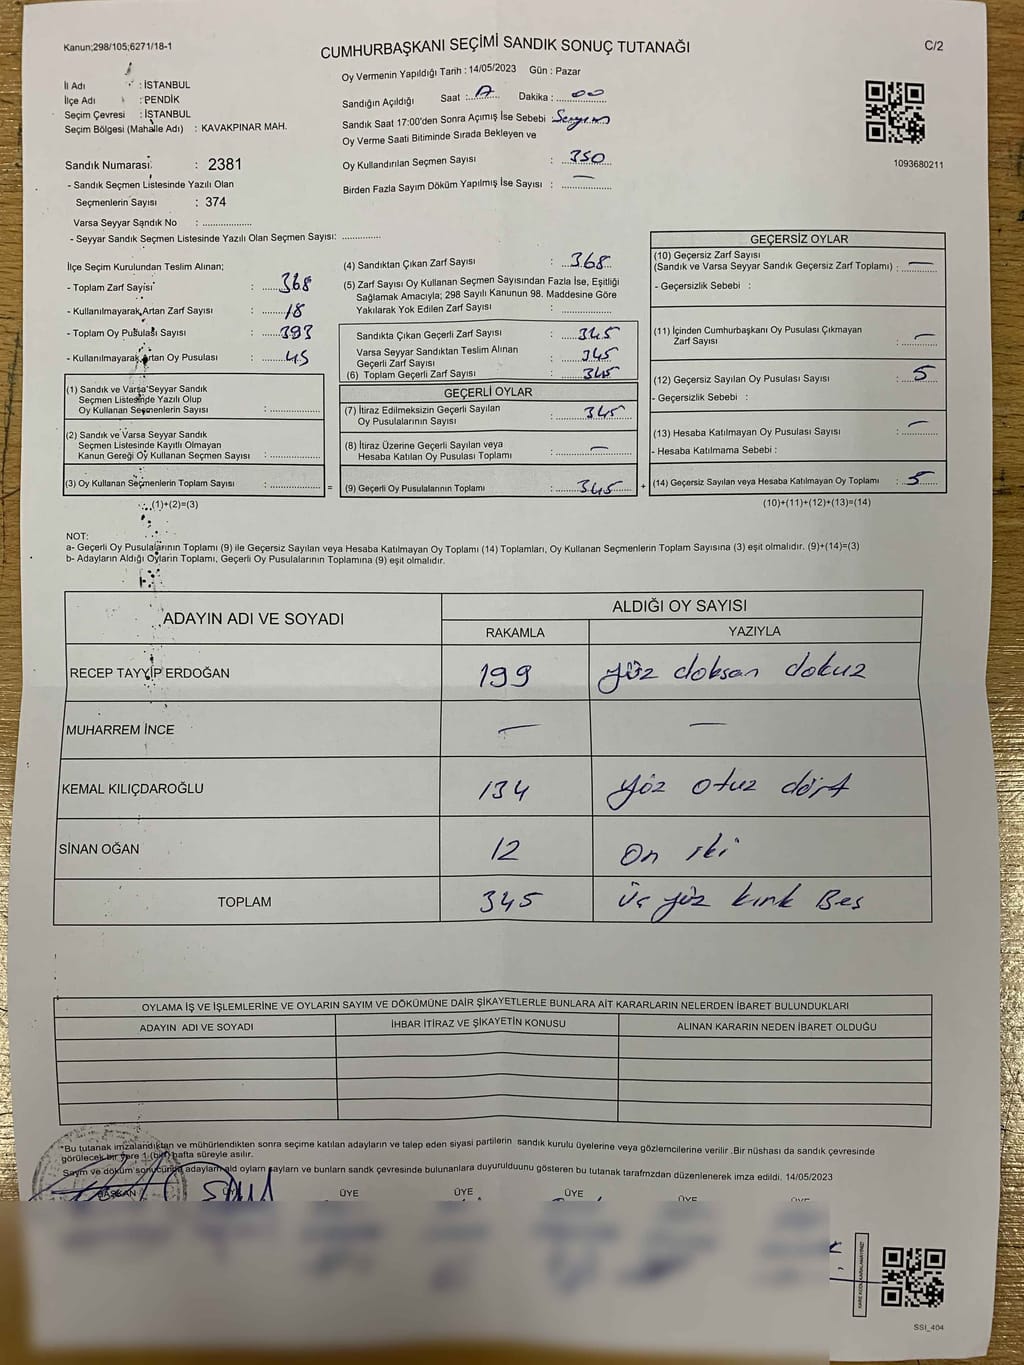 Kanun;298/105;6271/18-1
CUMHURBAŞKANI SEÇİMİ SANDIK SONUÇ TUTANAĞI
C/2
İl Adı : İSTANBUL
İlçe Adı : PENDİK
Seçim Çevresi : İSTANBUL
Seçim Bölgesi (Mahalle Adı) : KAVAKPINAR MAH.
Sandık Numarası : 2381
- Sandık Seçmen Listesinde Yazılı Olan
Seçmenlerin Sayısı : 374
Varsa Seyyar Sandık No : ..................
- Seyyar Sandık Seçmen Listesinde Yazılı Olan Seçmen Sayısı: ..............
Oy Vermenin Yapıldığı Tarih : 14/05/2023 Gün : Pazar
Sandığın Açıldığı Saat : Dakika : 00
Sandık Saat 17:00'den Sonra Açımış İse Sebebi :
Oy Verme Saati Bitiminde Sırada Bekleyen ve
Oy Kullandırılan Seçmen Sayısı : 350
Birden Fazla Sayım Döküm Yapılmış İse Sayısı : —
1093680211
İlçe Seçim Kurulundan Teslim Alınan;
- Toplam Zarf Sayısı : 368
- Kullanılmayarak Artan Zarf Sayısı : 18
- Toplam Oy Pusulası Sayısı : 393
- Kullanılmayarak Artan Oy Pusulası : 45
(1) Sandık ve Varsa Seyyar Sandık
Seçmen Listesinde Yazılı Olup
Oy Kullanan Seçmenlerin Sayısı : ..................
(2) Sandık ve Varsa Seyyar Sandık
Seçmen Listesinde Kayıtlı Olmayan
Kanun Gereği Oy Kullanan Seçmen Sayısı : ..................
(3) Oy Kullanan Seçmenlerin Toplam Sayısı : .................. =
(1)+(2)=(3)
(4) Sandıktan Çıkan Zarf Sayısı : 368
(5) Zarf Sayısı Oy Kullanan Seçmen Sayısından Fazla İse, Eşitliği
Sağlamak Amacıyla; 298 Sayılı Kanunun 98. Maddesine Göre
Yakılarak Yok Edilen Zarf Sayısı : ..................
Sandıkta Çıkan Geçerli Zarf Sayısı : 345
Varsa Seyyar Sandıktan Teslim Alınan
Geçerli Zarf Sayısı : 345
(6) Toplam Geçerli Zarf Sayısı : 345
GEÇERLİ OYLAR
(7) İtiraz Edilmeksizin Geçerli Sayılan
Oy Pusulalarının Sayısı : 345
(8) İtiraz Üzerine Geçerli Sayılan veya
Hesaba Katılan Oy Pusulası Toplamı : —
(9) Geçerli Oy Pusulalarının Toplamı : 345 +
GEÇERSİZ OYLAR
(10) Geçersiz Zarf Sayısı
(Sandık ve Varsa Seyyar Sandık Geçersiz Zarf Toplamı) : —
- Geçersizlik Sebebi :
(11) İçinden Cumhurbaşkanı Oy Pusulası Çıkmayan
Zarf Sayısı : —
(12) Geçersiz Sayılan Oy Pusulası Sayısı : 5
- Geçersizlik Sebebi :
(13) Hesaba Katılmayan Oy Pusulası Sayısı : —
- Hesaba Katılmama Sebebi :
(14) Geçersiz Sayılan veya Hesaba Katılmayan Oy Toplamı : 5
(10)+(11)+(12)+(13)=(14)
NOT:
a- Geçerli Oy Pusulalarının Toplamı (9) ile Geçersiz Sayılan veya Hesaba Katılmayan Oy Toplamı (14) Toplamları, Oy Kullanan Seçmenlerin Toplam Sayısına (3) eşit olmalıdır. (9)+(14)=(3)
b- Adayların Aldığı Oyların Toplamı, Geçerli Oy Pusulalarının Toplamına (9) eşit olmalıdır.
ADAYIN ADI VE SOYADI
ALDIĞI OY SAYISI
RAKAMLA YAZIYLA
RECEP TAYYİP ERDOĞAN 199 yüz doksan dokuz
MUHARREM İNCE — —
KEMAL KILIÇDAROĞLU 134 yüz otuz dört
SİNAN OĞAN 12 on iki
TOPLAM 345 üç yüz kırk Beş
OYLAMA İŞ VE İŞLEMLERİNE VE OYLARIN SAYIM VE DÖKÜMÜNE DAİR ŞİKAYETLERLE BUNLARA AİT KARARLARIN NELERDEN İBARET BULUNDUKLARI
ADAYIN ADI VE SOYADI İHBAR İTİRAZ VE ŞİKAYETİN KONUSU ALINAN KARARIN NEDEN İBARET OLDUĞU
*Bu tutanak imzalandıktan ve mühürlendikten sonra seçime katılan adayların ve talep eden siyasi partilerin sandık kurulu üyelerine veya gözlemcilerine verilir .Bir nüshası da sandık çevresinde
görülecek bir yere 1 (bir) hafta süreyle asılır.
Sayım ve döküm sonucunda adaylarn ald oylarn saylarn ve bunlarn sandk çevresinde bulunanlara duyurulduunu gösteren bu tutanak tarafmzdan düzenlenerek imza edildi. 14/05/2023
BAŞKAN ÜYE ÜYE ÜYE ÜYE ÜYE ÜYE
SSİ_404